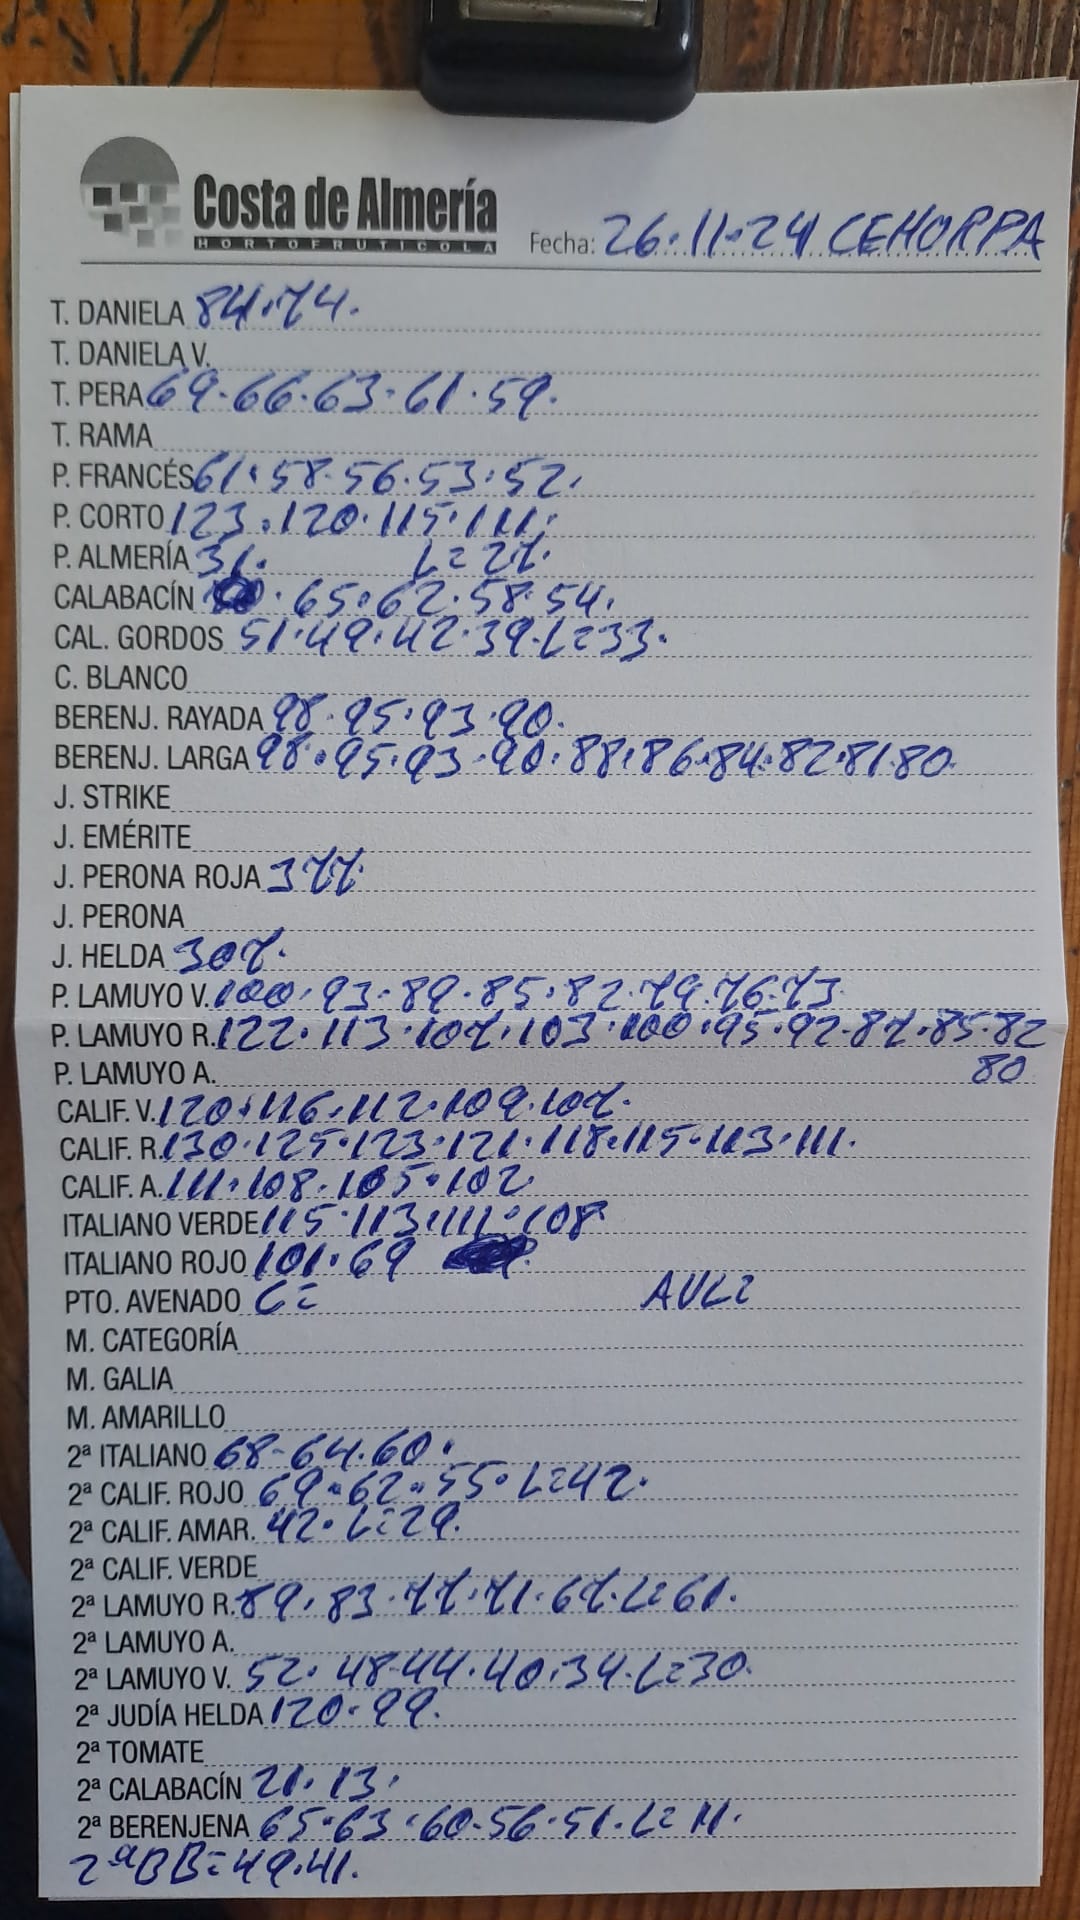 Costa de Almería
HORTOFRUTICOLA
Fecha: 26.11.24 CEHORPA
T. DANIELA 84.74.
T. DANIELA V.
T. PERA 69.66.63.61.59.
T. RAMA
P. FRANCÉS 61.58.56.53.52.
P. CORTO 123.120.115.111.
P. ALMERÍA 31. L=27.
CALABACÍN . 65.62.58.54.
CAL. GORDOS 51.49.42.39.L=33.
C. BLANCO
BERENJ. RAYADA 98.95.93.90.
BERENJ. LARGA 98.95.93.90.88.86.84.82.81.80
J. STRIKE
J. EMÉRITE
J. PERONA ROJA 377.
J. PERONA
J. HELDA 307.
P. LAMUYO V. 100.93.89.85.82.79.76.73
P. LAMUYO R. 122.113.107.103.100.95.92.87.85.82
P. LAMUYO A. 80
CALIF. V. 120.116.112.109.107.
CALIF. R. 130.125.123.121.118.115.113.111.
CALIF. A. 111.108.105.102
ITALIANO VERDE 115.113.111.108
ITALIANO ROJO 101.69
PTO. AVENADO C= AVL=
M. CATEGORÍA
M. GALIA
M. AMARILLO
2ª ITALIANO 68-64.60.
2ª CALIF. ROJO 69.62.55.L=42.
2ª CALIF. AMAR. 42.L=29.
2ª CALIF. VERDE
2ª LAMUYO R. 89.83.77.71.67.L=61.
2ª LAMUYO A.
2ª LAMUYO V. 52.48-44.40.34.L=30.
2ª JUDÍA HELDA 120.99.
2ª TOMATE
2ª CALABACÍN 21.13.
2ª BERENJENA 65.63.60.56.51.L=11.
2ªBB=49.41.